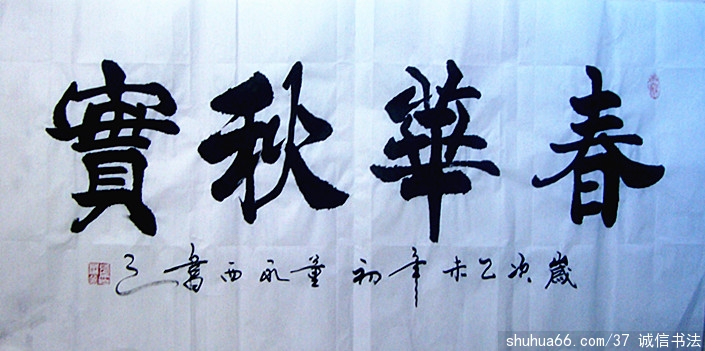 春華秋實
歲次乙未年初董永西書之
shuhua66.com/37 诚信书法